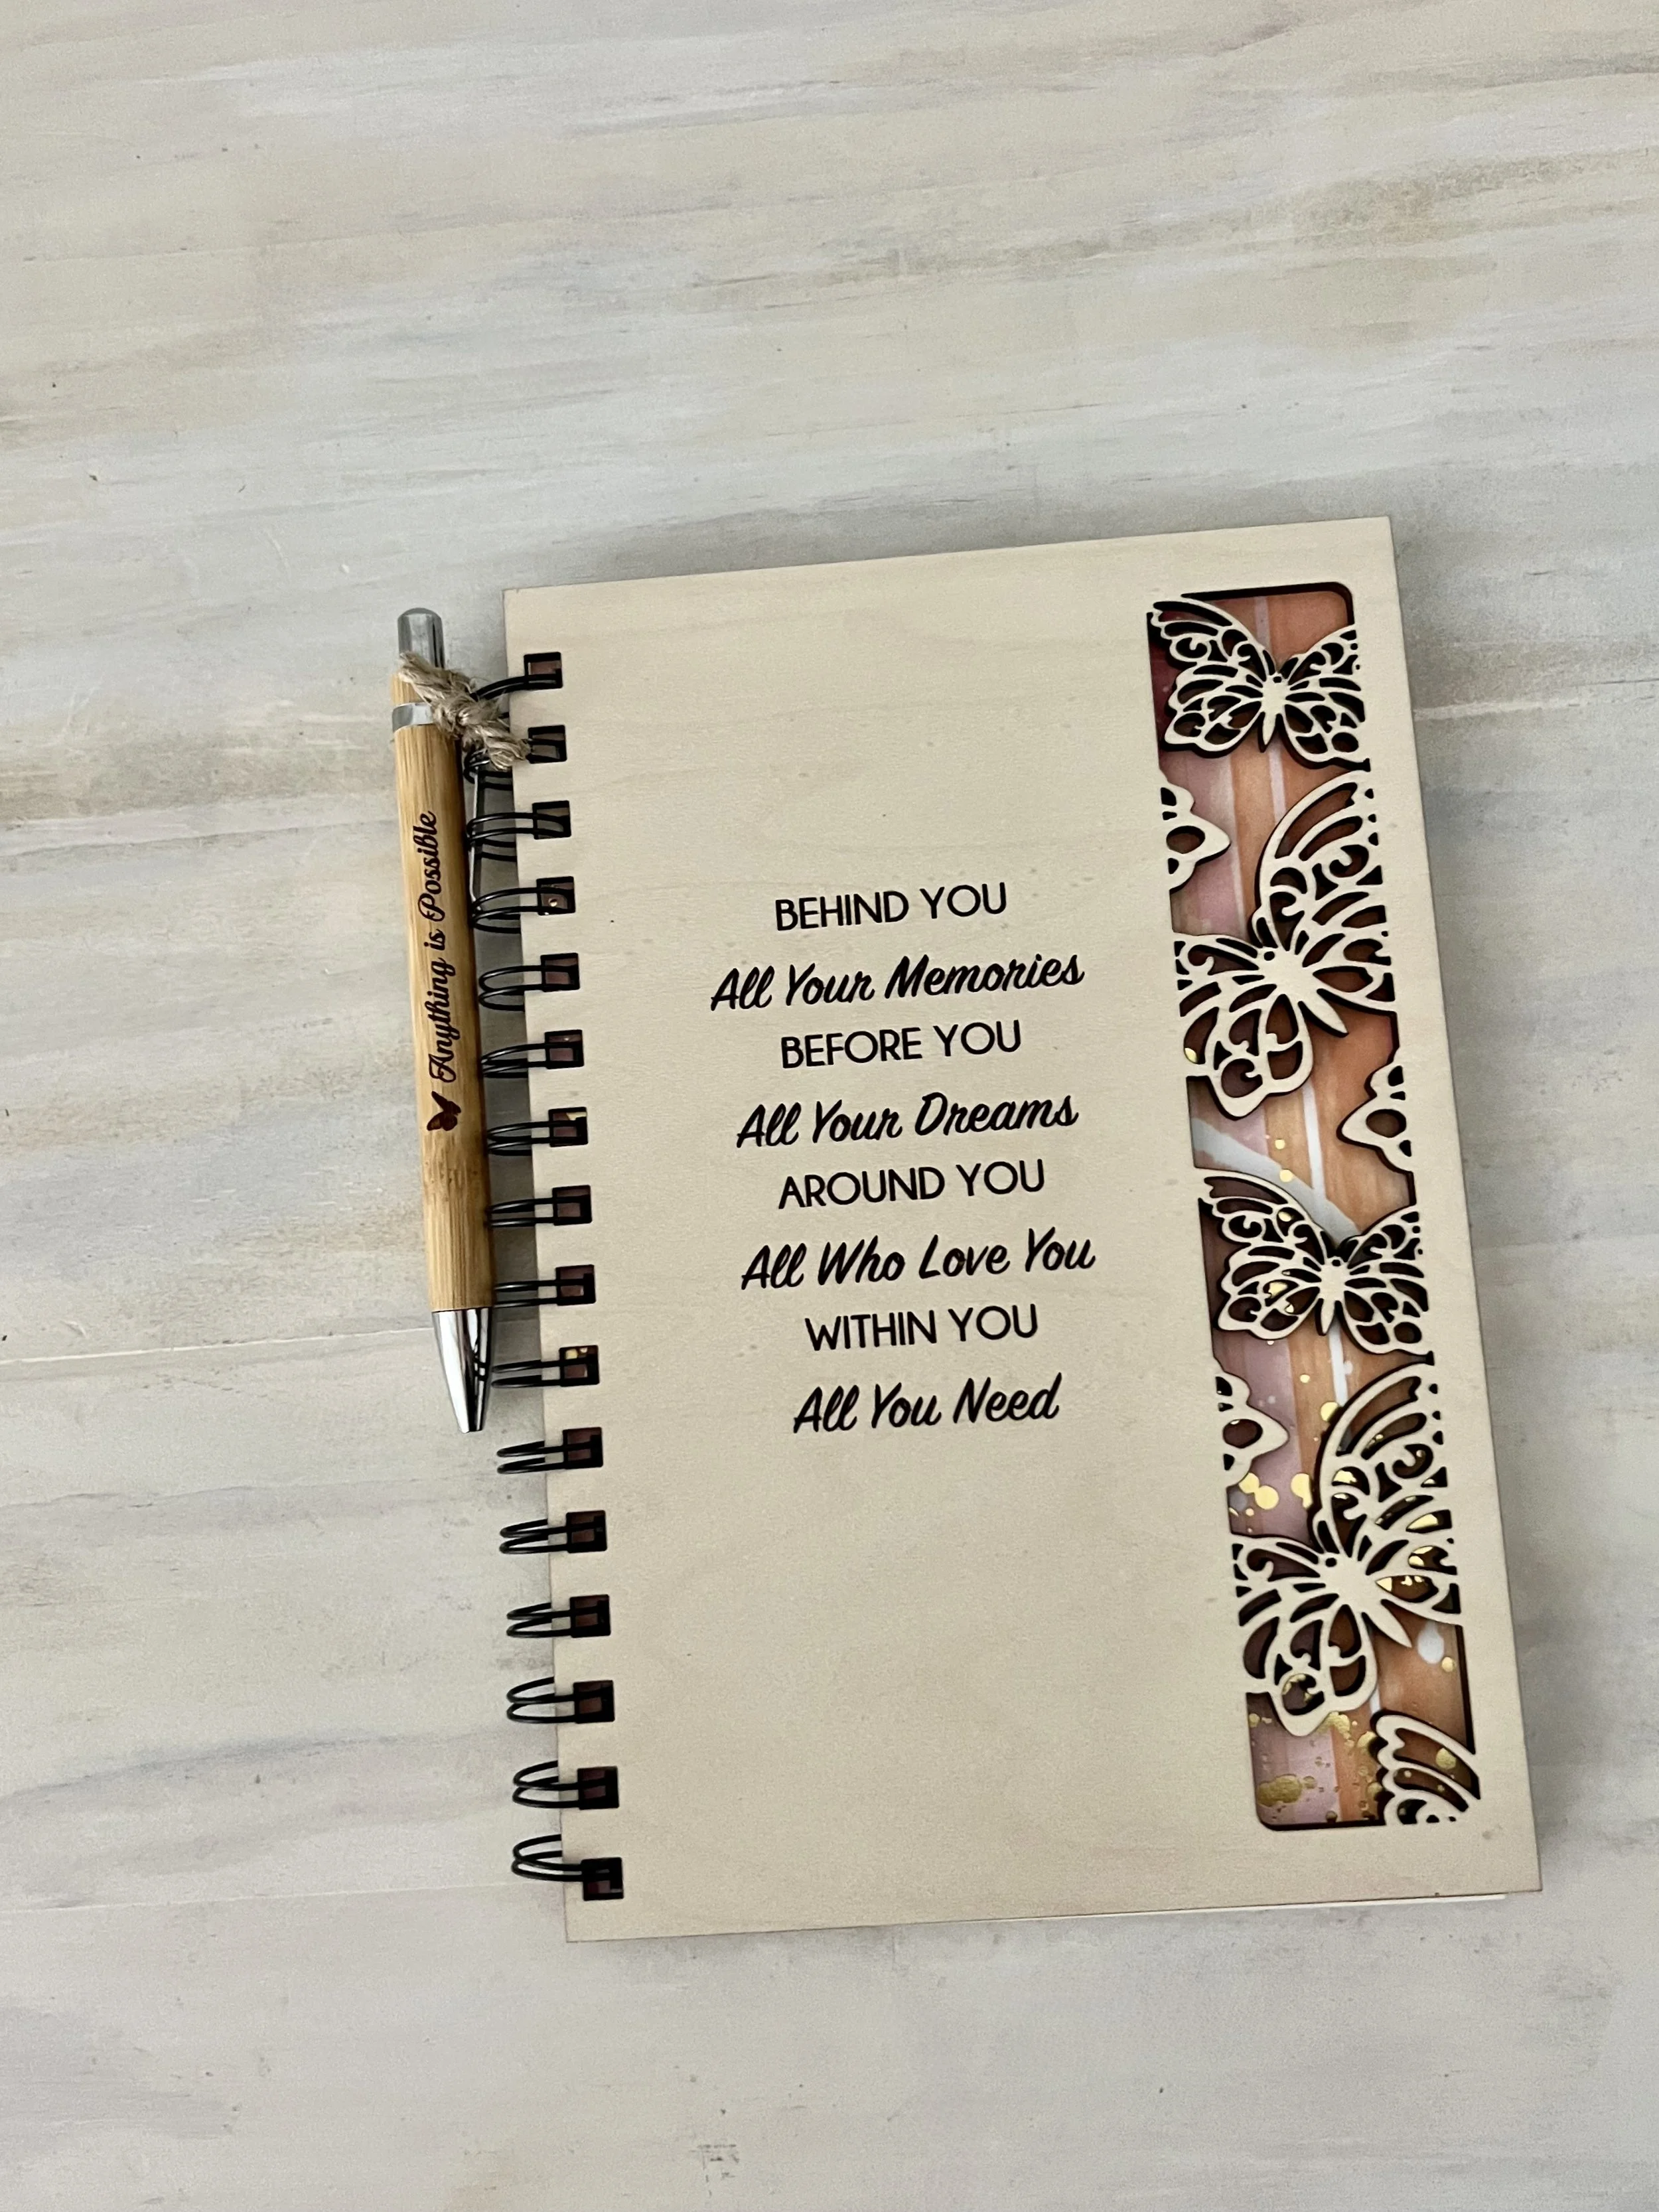 Anything is Possible
BEHIND YOU
All Your Memories
BEFORE YOU
All Your Dreams
AROUND YOU
All Who Love You
WITHIN YOU
All You Need